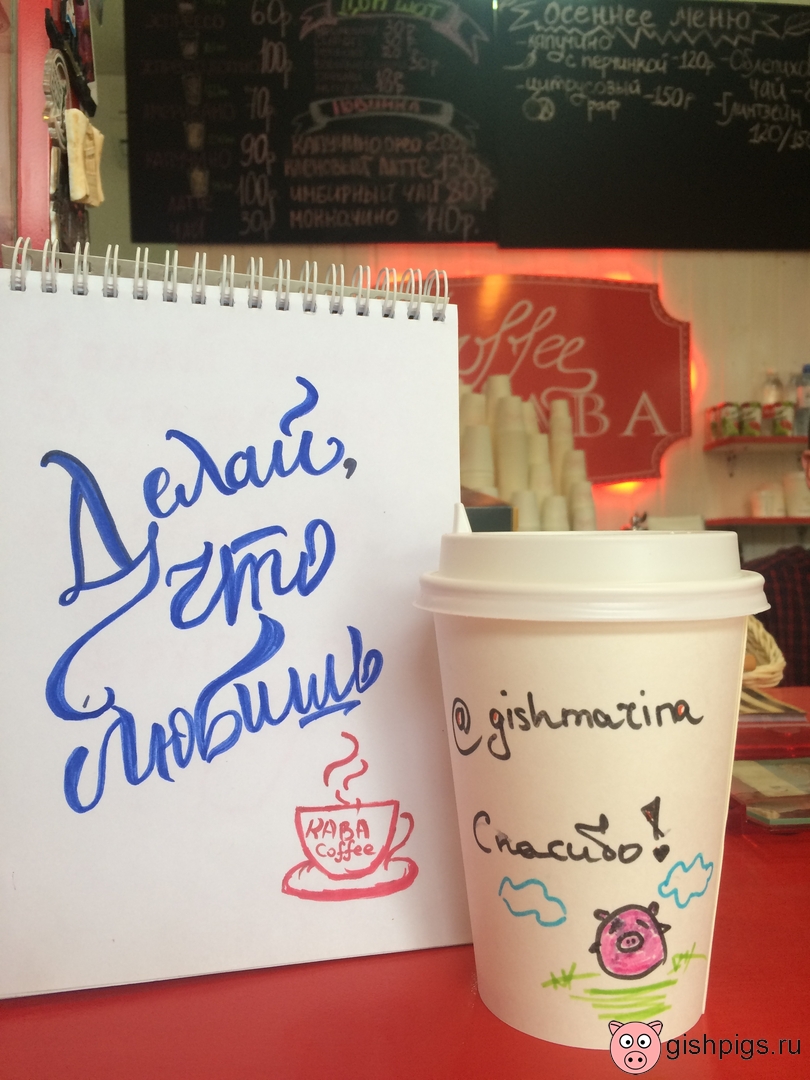 60р
100р
70р
90р
100р
30р
НОВИНКА
КЛЕНОВЫЙ ЛАТТЕ 130р.
ИМБИРНЫЙ ЧАЙ 80р.
МОККАЧИНО 140р.
Осеннее меню
- капучино
с перчинкой - 120р
- цитрусовый
раф - 150р
чай
- Глинтвейн
Coffee
КАВА
Делай,
что
любишь
КАВА
Coffee
@gishmarina
Спасибо!
gishpigs.ru